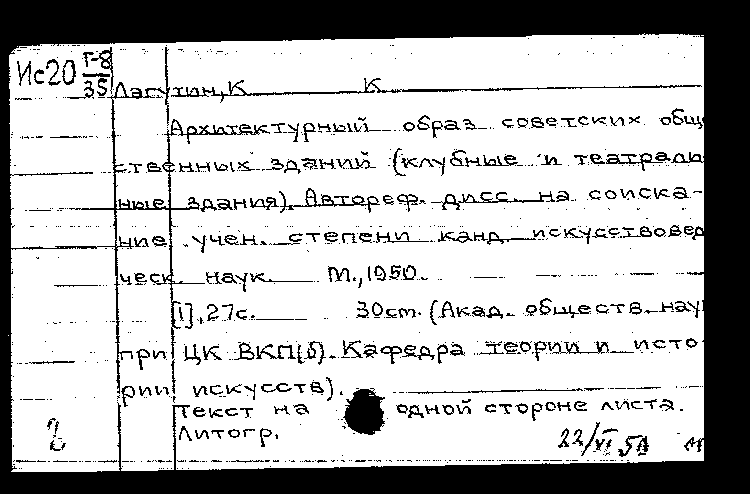 Ис20 Г-8
35
Лагутин, К К
Архитектурный образ советских обще
ственных зданий (клубные и театраль
ные здания). Автореф. дисс. на соиска-
ние учен. степени канд. искусствовед
ческ. наук. М., 1950.
[1], 27с. 30см. (Акад. обществ. наук
при ЦК ВКП(б). Кафедра теории и исто-
рии искусств).
Текст на одной стороне листа.
Литогр.
2 22/VI 50